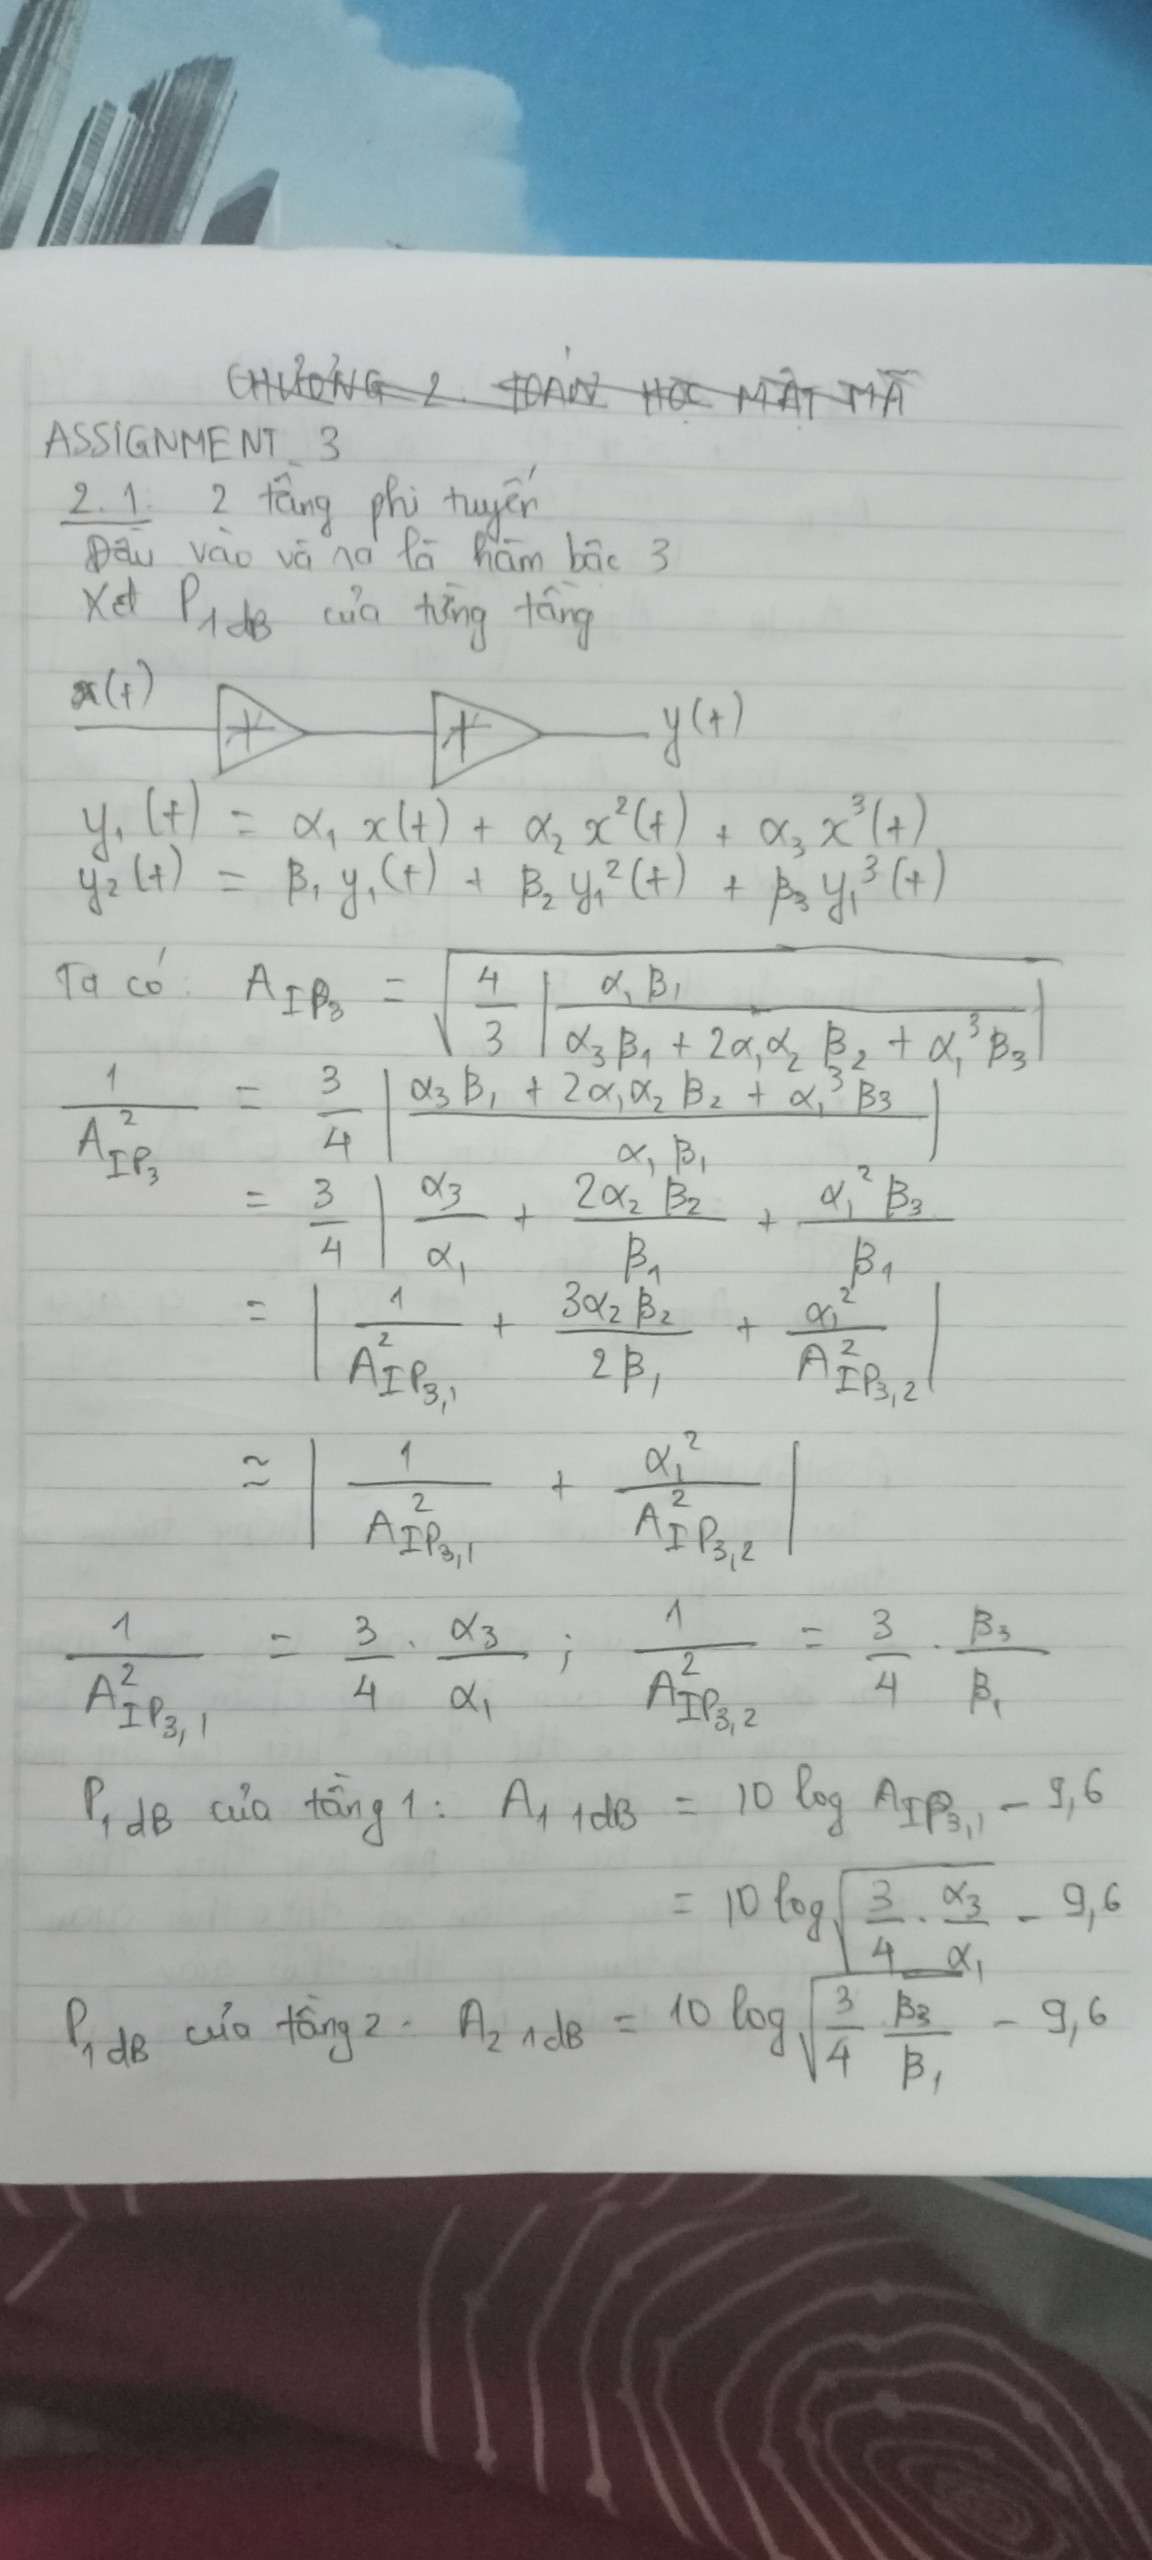 CHƯƠNG 2. TOÁN HỌC MẬT MÃ
ASSIGNMENT 3
2.1. 2 tầng phi tuyến
Đầu vào và ra là hàm bậc 3
Xét P1dB của từng tầng
x(t) y(t)
y₁(t) = α₁ x(t) + α₂ x²(t) + α₃ x³(t)
y₂(t) = β₁ y₁(t) + β₂ y₁²(t) + β₃ y₁³(t)
Ta có: A_IP3 = √(4/3 |α₁β₁ / (α₃β₁ + 2α₁α₂β₂ + α₁³β₃)|)
1/A²_IP3 = 3/4 |(α₃β₁ + 2α₁α₂β₂ + α₁³β₃) / (α₁β₁)|
= 3/4 | α₃/α₁ + 2α₂β₂/β₁ + α₁²β₃/β₁
= | 1/A²_IP3,1 + 3α₂β₂/2β₁ + α₁²/A²_IP3,2 |
≈ | 1/A²_IP3,1 + α₁²/A²_IP3,2 |
1/A²_IP3,1 = 3/4 . α₃/α₁ ; 1/A²_IP3,2 = 3/4 . β₃/β₁
P1dB của tầng 1: A₁ 1dB = 10 log A_IP3,1 - 9,6
= 10 log √(3/4 . α₃/α₁) - 9,6
P1dB của tầng 2. A₂ 1dB = 10 log √(3/4 β₃/β₁) - 9,6